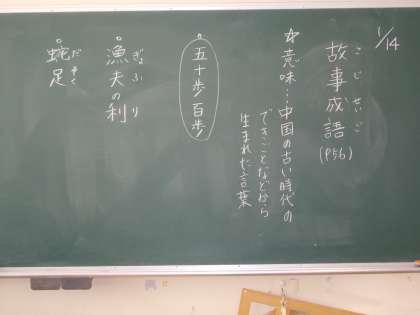 1/14
故事成語 (P56)
こじせいご
☆意味…中国の古い時代の
できごとなどから
生まれた言葉
五十歩百歩
漁夫の利
ぎょふり
蛇足
だそく